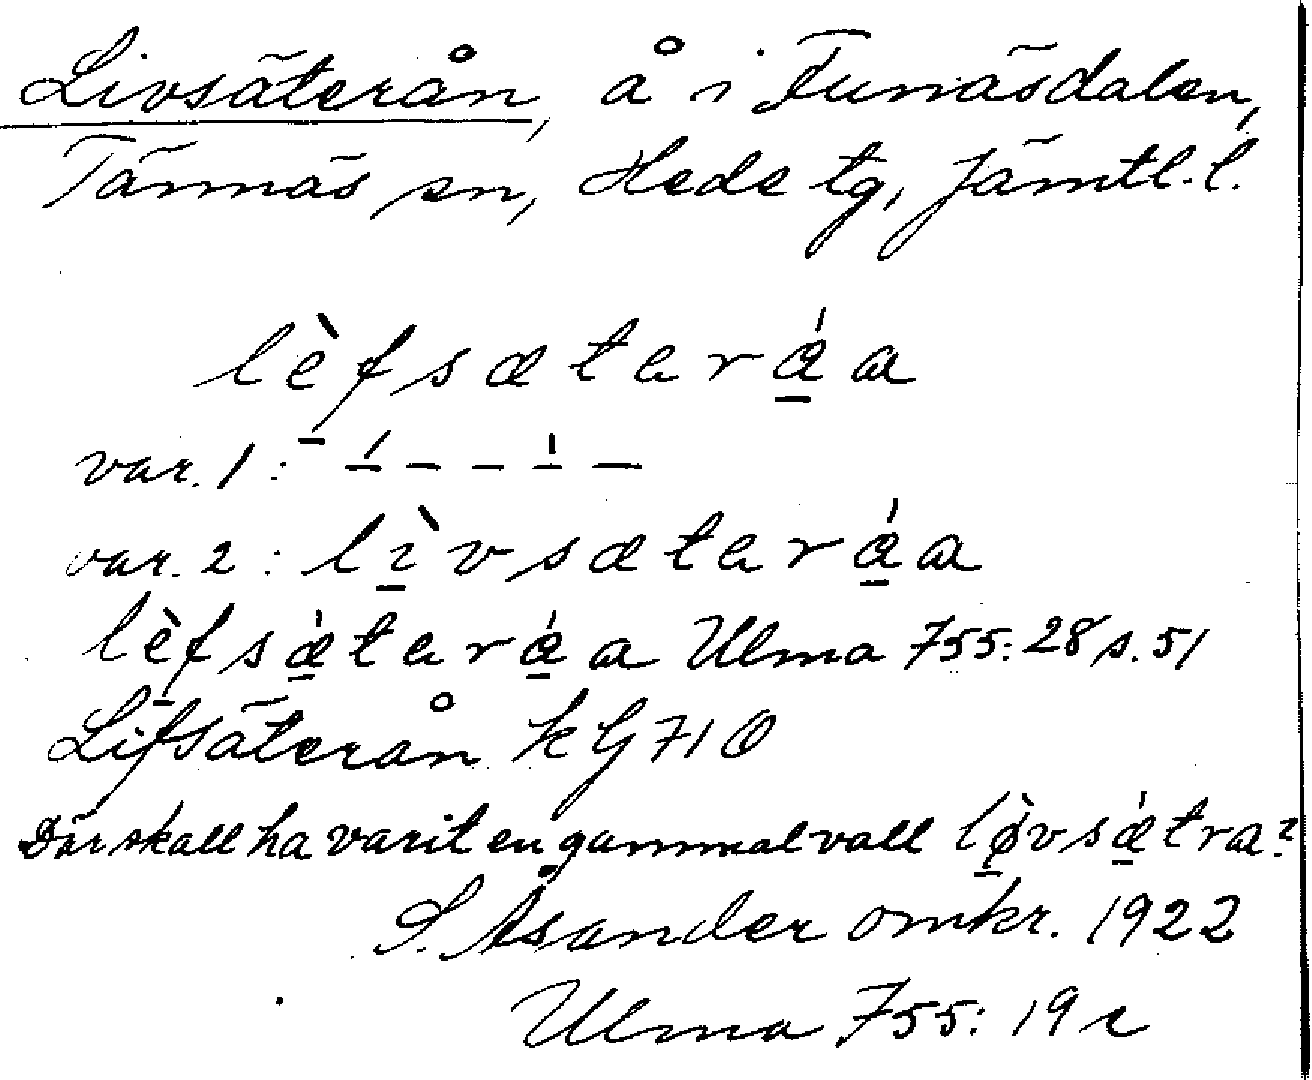 Livsäterån, å i Funäsdalen,
Tännäs sn, Hede tg, Jämtl. l.
lèfsæteráa
var. 1: – – – – –
var. 2: lìvsæteráa
lèfsǽteráa Ulma 755:28 s. 51
Lifsäterån kG 710
Där skall ha varit en gammal vall lø̀vsǽtra?
S. Åsander omkr. 1922
Ulma 755: 19 c